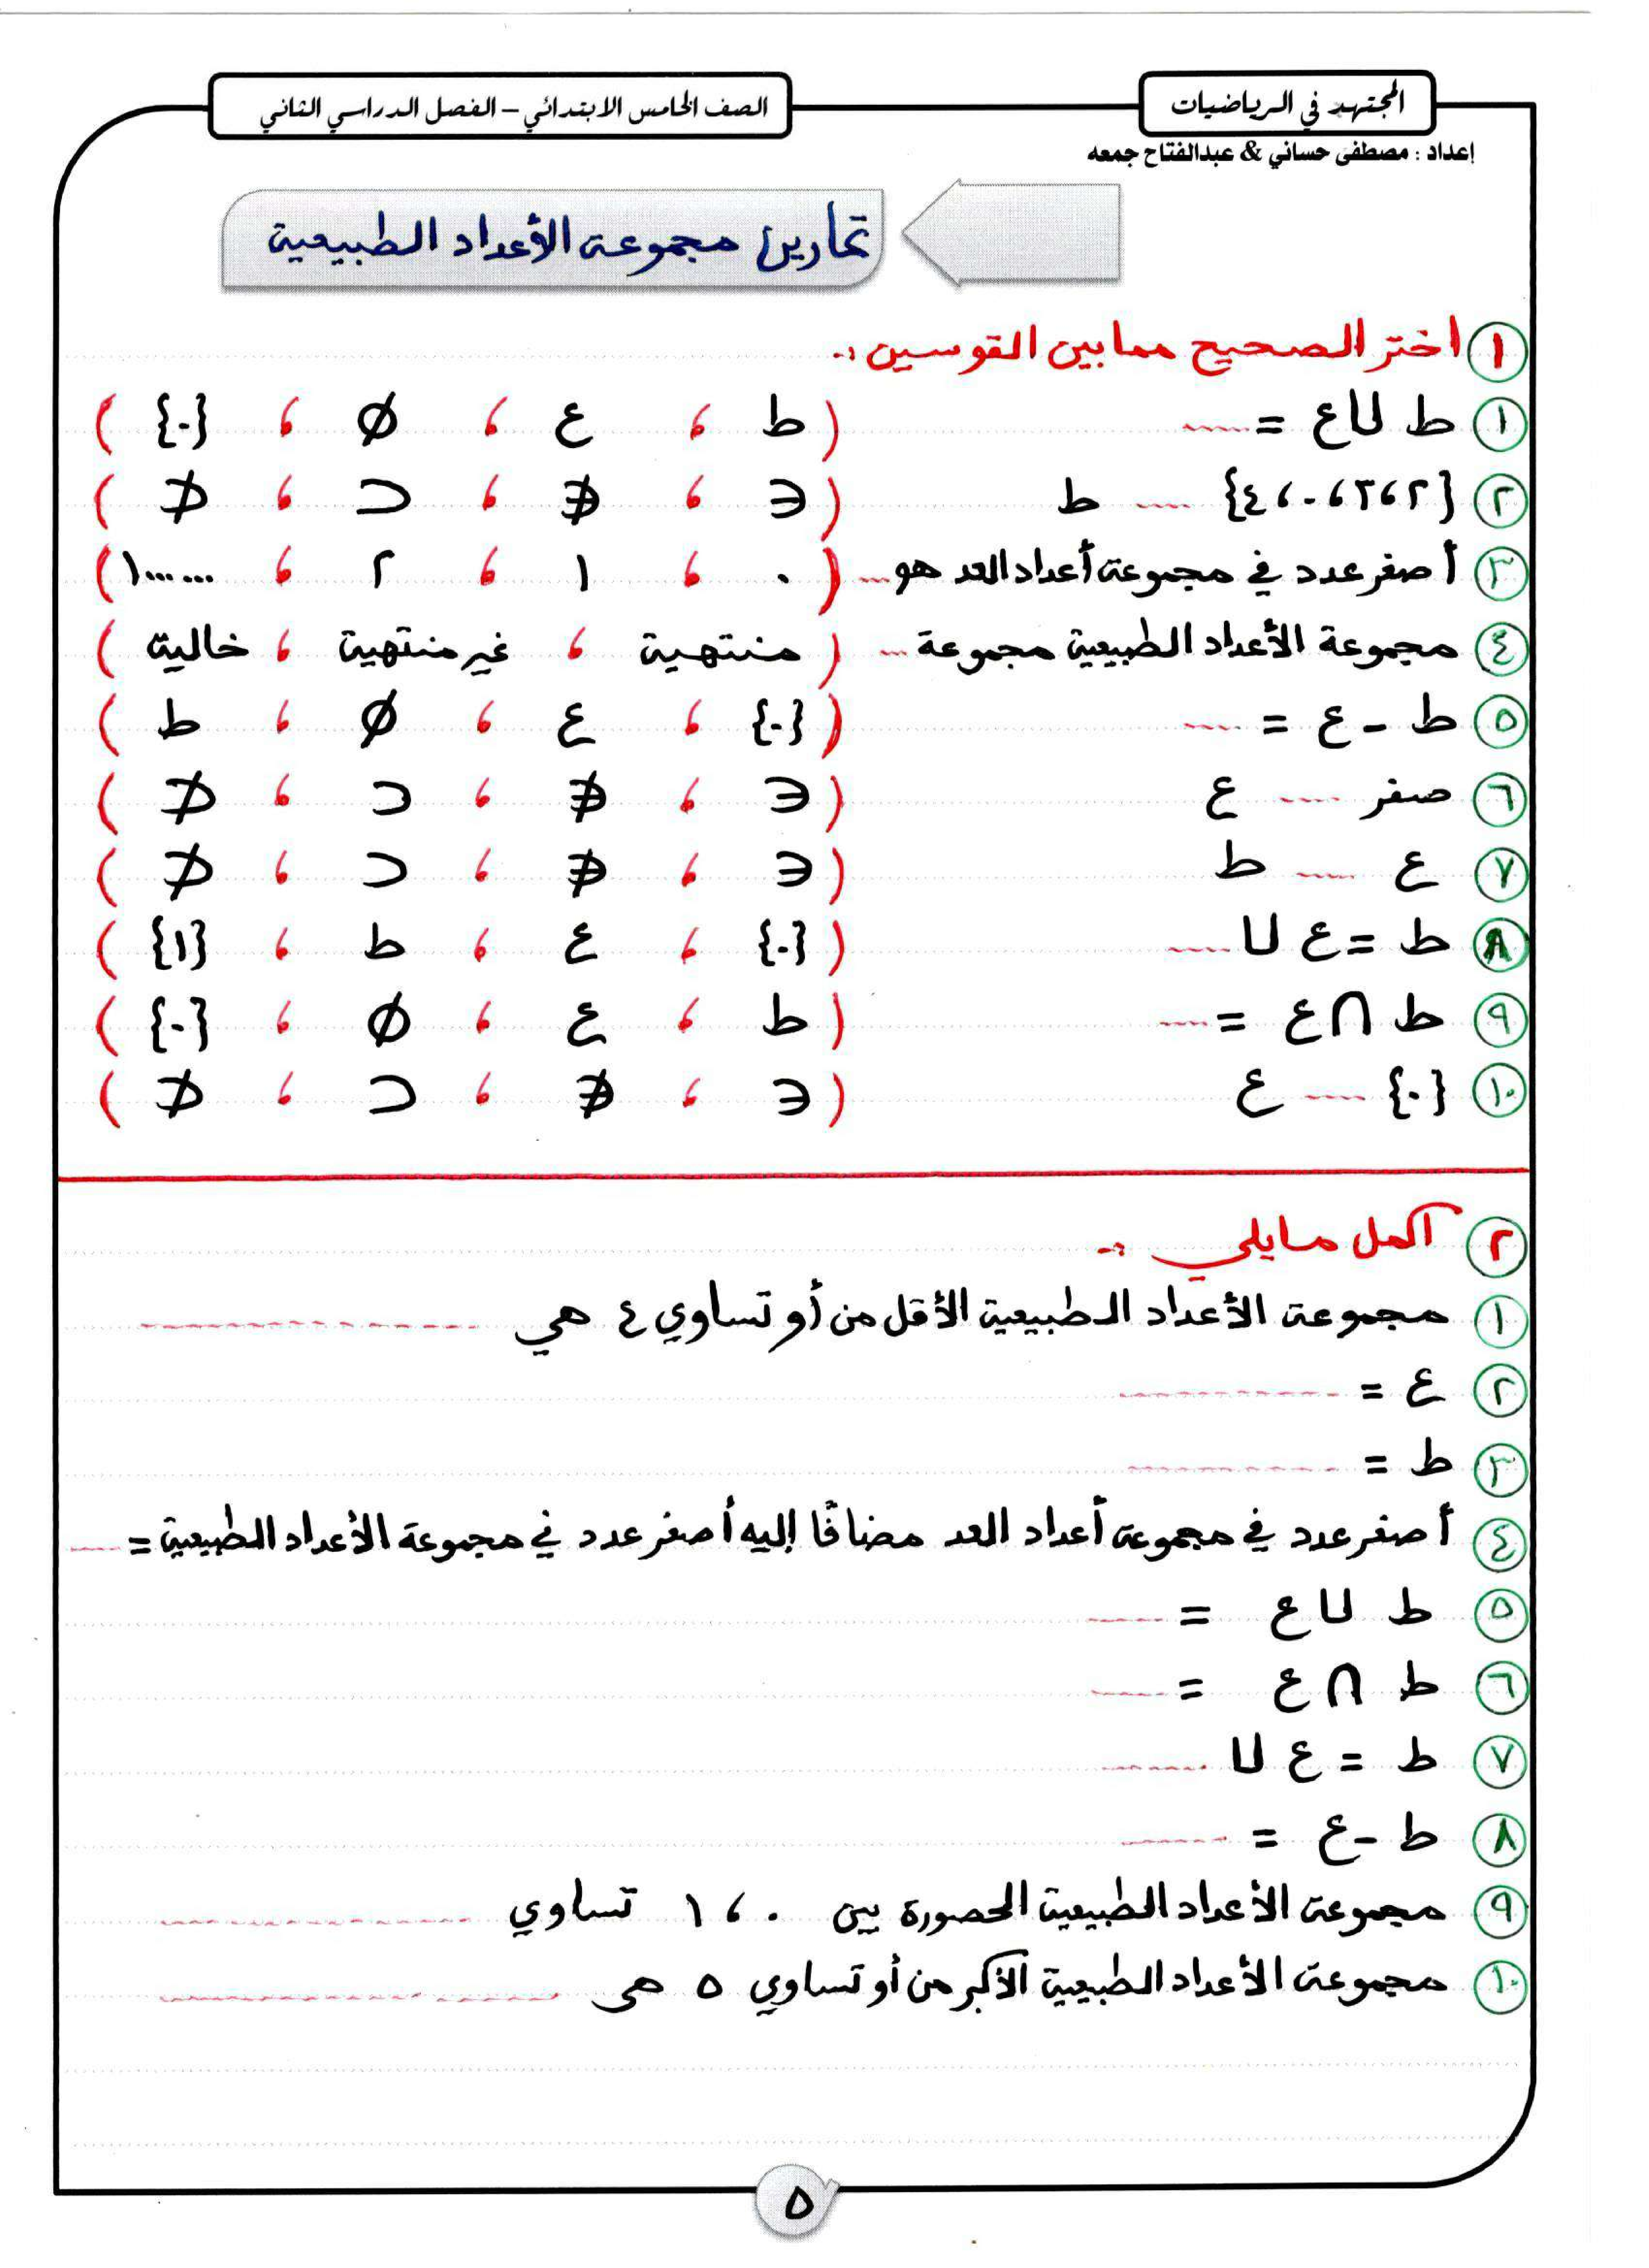 المجتهد في الرياضيات
الصف الخامس الابتدائي – الفصل الدراسي الثاني
إعداد : مصطفى حساني & عبدالفتاح جمعه
تمارين مجموعة الأعداد الطبيعية
١ اختر الصحيح مما بين القوسين :-
١ ط ∪ ع = ..... ( ط ، ع ، ∅ ، {٠} )
٢ {٢ ، ٣ ، ٠ ، ٤} ..... ط ( ∈ ، ∉ ، ⊂ ، ⊄ )
٣ أصغر عدد في مجموعة أعداد العد هو ... ( ٠ ، ١ ، ٢ ، ١٠٠٠٠٠٠ )
٤ مجموعة الأعداد الطبيعية مجموعة ... ( منتهية ، غير منتهية ، خالية )
٥ ط - ع = ..... ( {٠} ، ع ، ∅ ، ط )
٦ صفر ..... ع ( ∈ ، ∉ ، ⊂ ، ⊄ )
٧ ع ..... ط ( ∈ ، ∉ ، ⊂ ، ⊄ )
٨ ط = ع ∪ ..... ( {٠} ، ع ، ط ، {١} )
٩ ط ∩ ع = ..... ( ط ، ع ، ∅ ، {٠} )
١٠ {٠} ..... ع ( ∈ ، ∉ ، ⊂ ، ⊄ )
٢ اكمل مايلي :-
١ مجموعة الأعداد الطبيعية الأقل من أو تساوي ٤ هي ..........
٢ ع = ..........
٣ ط = ..........
٤ أصغر عدد في مجموعة أعداد العد مضافًا إليه أصغر عدد في مجموعة الأعداد الطبيعية = .....
٥ ط ∪ ع = .....
٦ ط ∩ ع = .....
٧ ط = ع ∪ .....
٨ ط - ع = .....
٩ مجموعة الأعداد الطبيعية المحصورة بين ٠ ، ١ تساوي ..........
١٠ مجموعة الأعداد الطبيعية الأكبر من أو تساوي ٥ هى ..........
٥